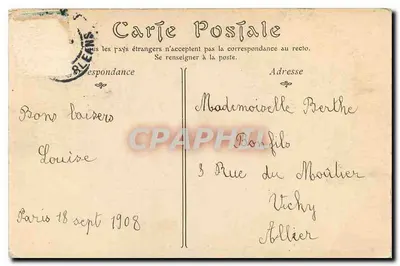 Carte Postale
les pays étrangers n'acceptent pas la correspondance au recto.
Se renseigner à la poste.
ORLEANS
respondance
Adresse
Bons baisers
Louise
Paris 18 sept 1908
Mademoiselle Berthe
Bonfils
3 Rue du Moûtier
Vichy
Allier
CPAPHIL